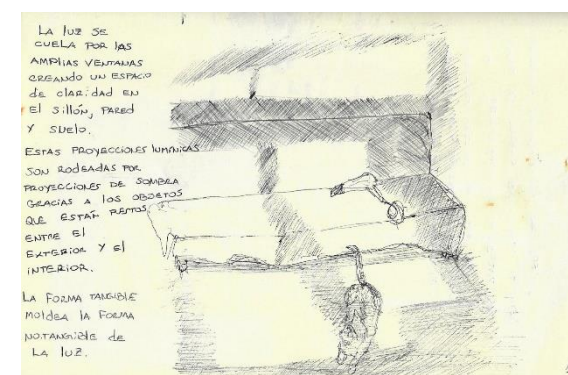 LA LUZ SE
CUELA POR LAS
AMPLIAS VENTANAS
CREANDO UN ESPACIO
de clARidAd EN
El Sillón, PARED
Y SUElO.
ESTAS PROYECCIONES LUMÍNICAS
SON RODEADAS POR
PROYECCIONES DE SOMBRA
GRACIAS A LOS OBJETOS
QUE ESTÁN
ENTRE El
EXTERIOR Y El
INTERIOR.
LA FORMA TANGIBLE
MOldEA lA FORMA
NO.TANGIBLE de
LA lUZ.